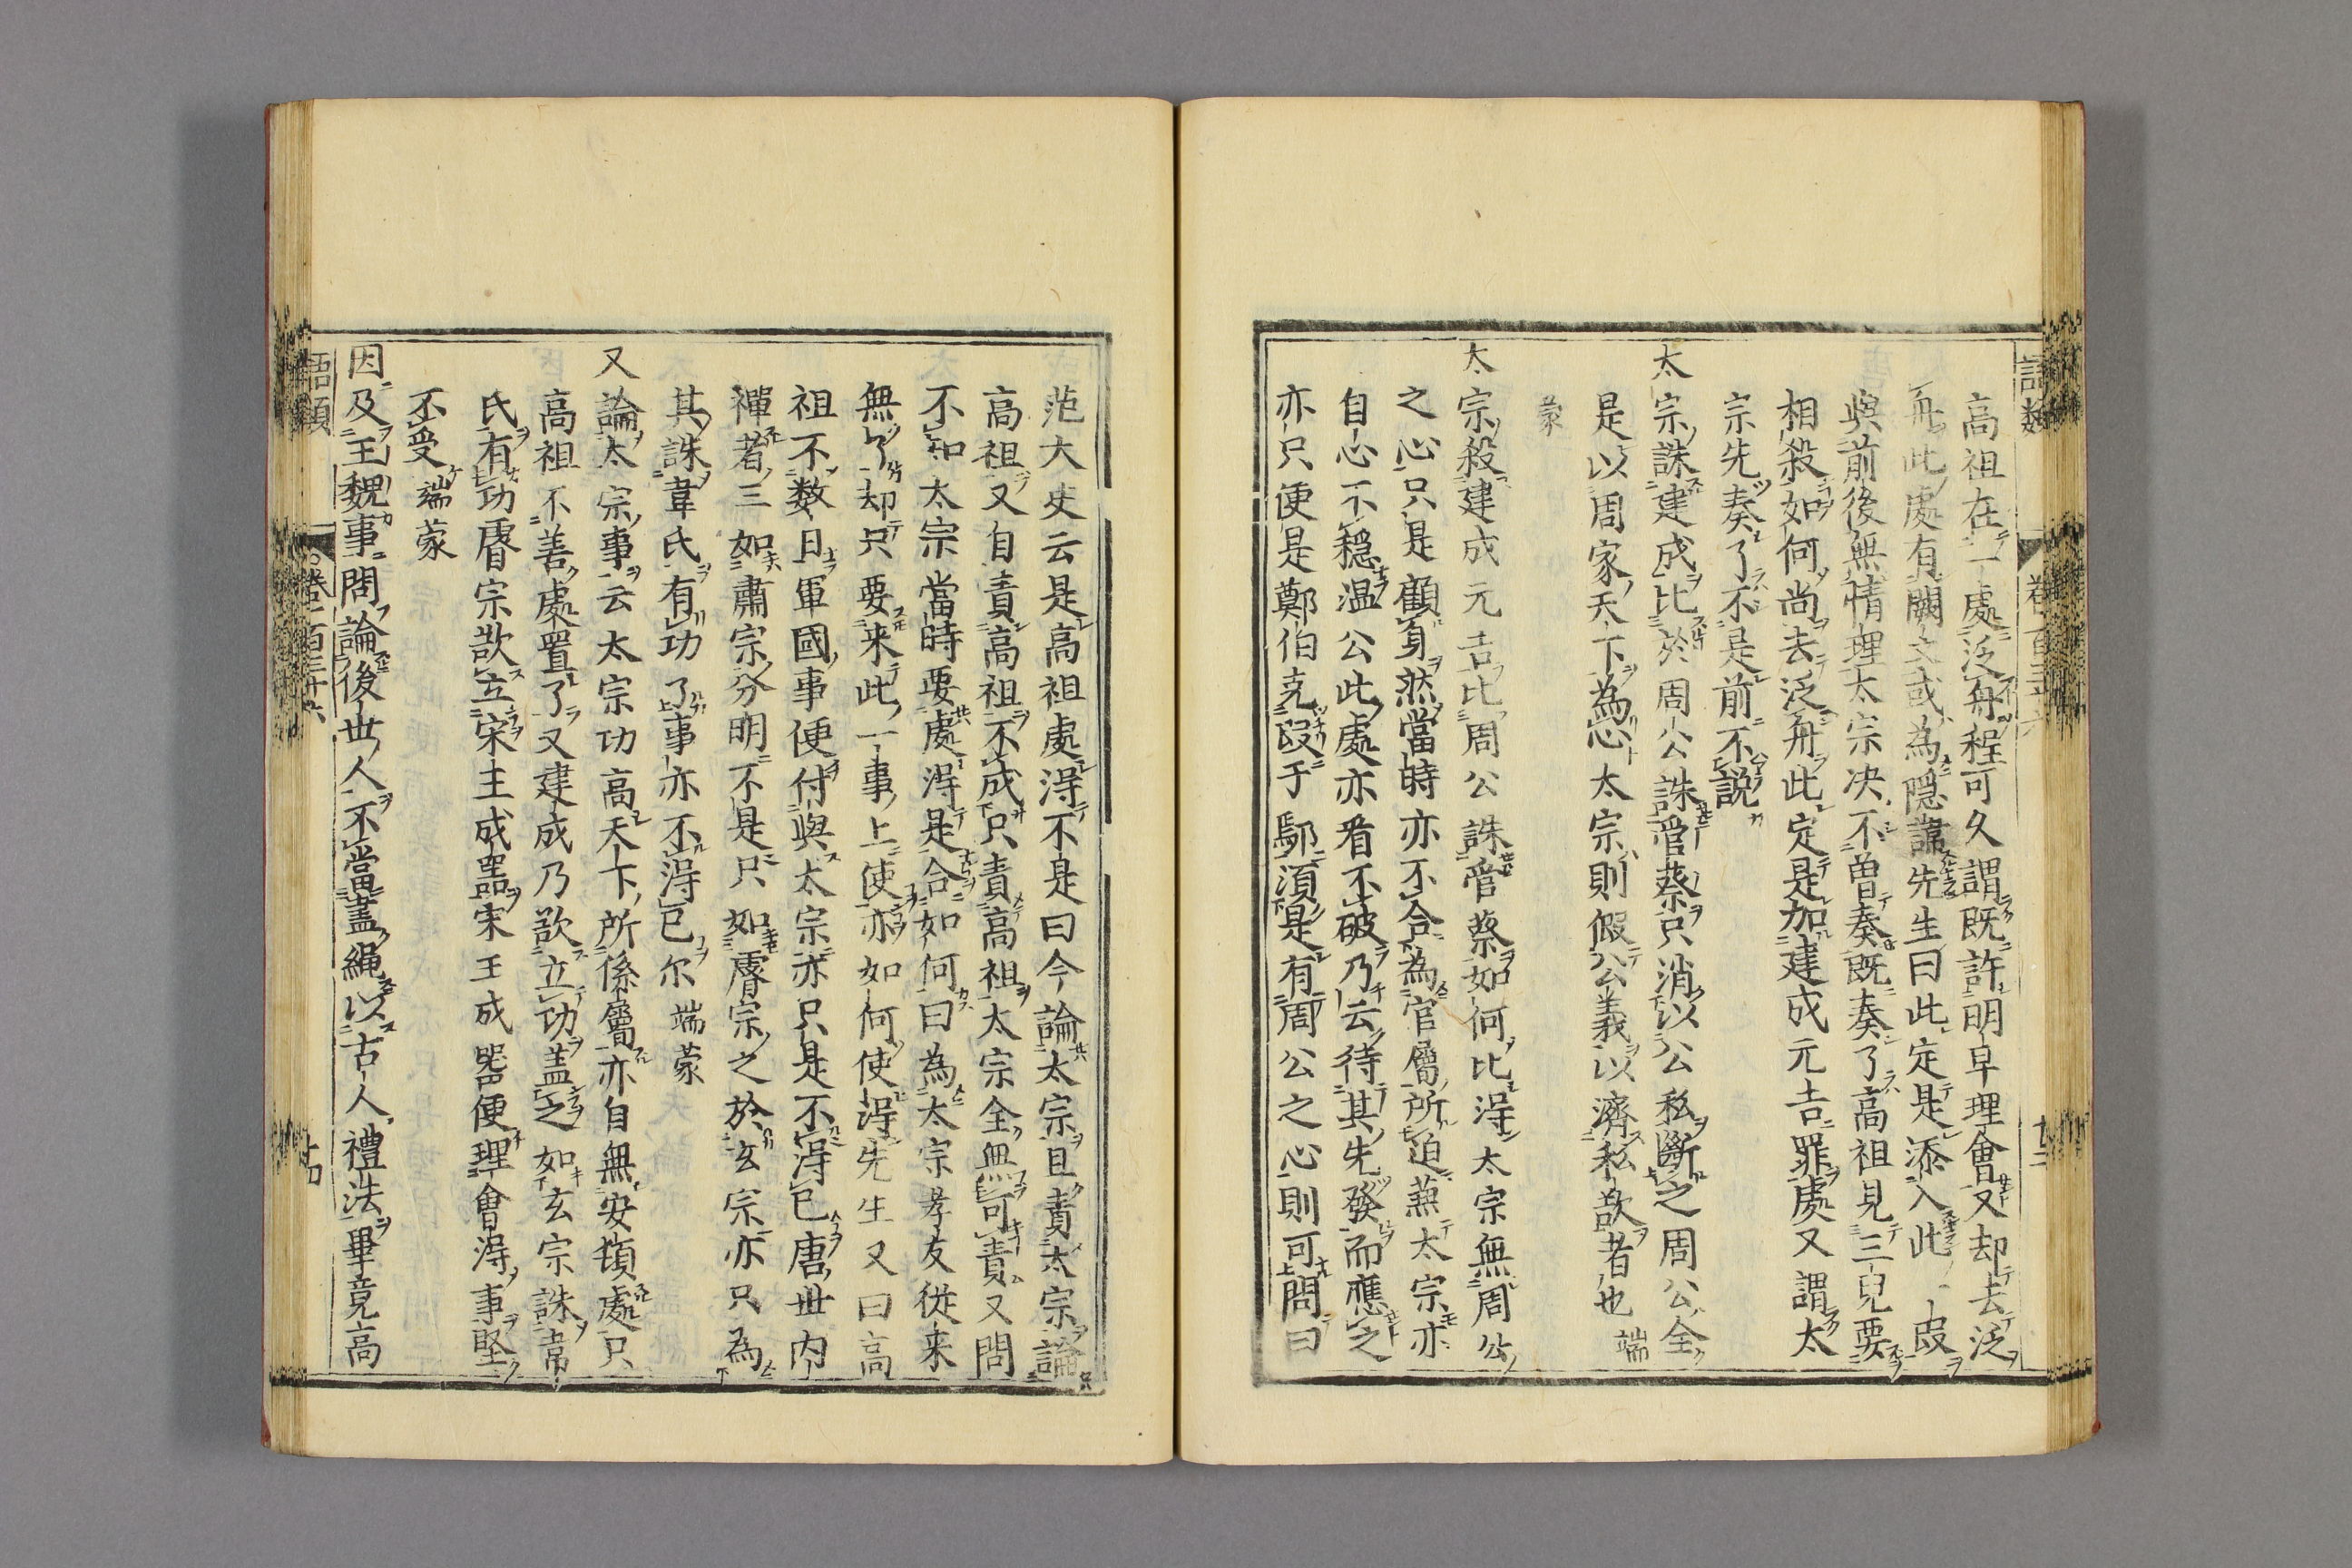 高祖在一處泛舟程可久謂既許明早理會又却去泛
舟此處有闕文或為隱諱先生曰此定是添入此一段
與前後無情理太宗决不曾奏既奏了高祖見三兒要
相殺如何尚去泛舟此定是加建成元吉罪處又謂太
宗先奏了不是前不說
太宗誅建成比於周公誅管蔡只消以公私斷之周公全
是以周家天下為心太宗則假公義以濟私欲者也 端
蒙
太宗殺建成元吉比周公誅管蔡如何比得太宗無周公
之心只是顧身然當時亦不合為官屬所迫蕪太宗亦
自心不穩温公此處亦看不破乃云待其先發而應之
亦只便是鄭伯克段于鄢湏是有周公之心則可問曰
范大史云是高祖處得不是曰今論太宗且責太宗論
高祖又自責高祖不成只責高祖太宗全無可責又問
不知太宗當時要處得是合如何曰為太宗孝友従来
無了却只要来此一事上使亦如何使得先生又曰高
祖不数日軍國事便付與太宗亦只是不得已唐世内
禪者三如肅宗分明不是只如睿宗之於玄宗亦只為
其誅韋氏有功了事亦不得已尓 端蒙
又論太宗事云太宗功高天下所係屬亦自無安頓處只
高祖不善處置了又建成乃欲立功盖之如玄宗誅韋
氏有功睿宗欲立宋王成噐宋王成噐便理會得事堅
不受 端蒙
因及王魏事問論後世人不當盡繩以古人禮法畢竟高
語類 卷一百三十六